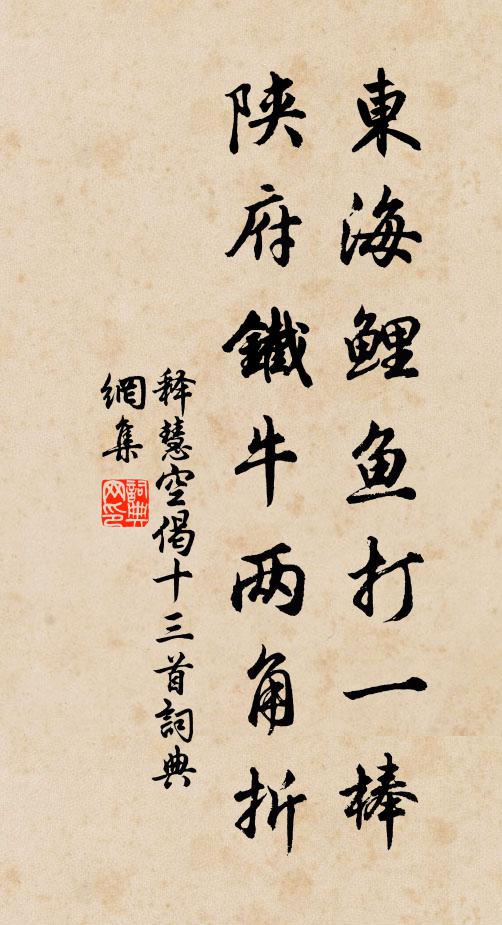 東海鯉鱼打一棒
陝府鐵牛两角折
释慧空偈十三首詞典
網集
詞典
网印